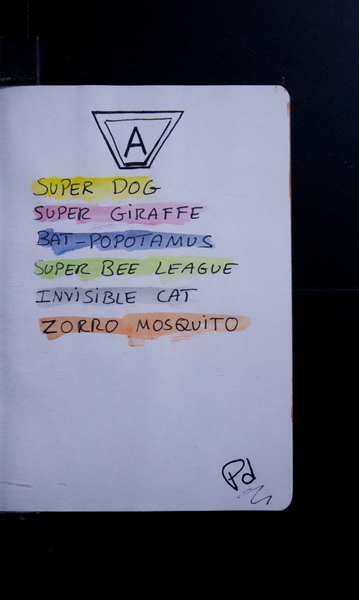 A
SUPER DOG
SUPER GiRAFFE
BAT-POPOTAMUS
SUPER BEE LEAGUE
INViSIBLE CAT
ZORRO MOSQUiTO
Pd